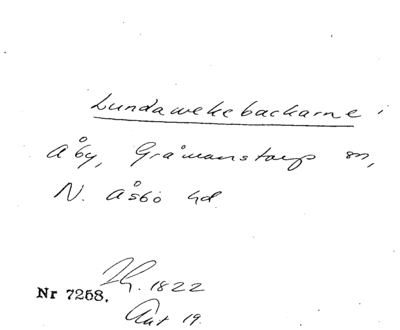 Lundawekebackarne i
Åby, Gråmanstorps sn,
N. Åsbo hd.
1822
Nr 7258.
Akt 19.